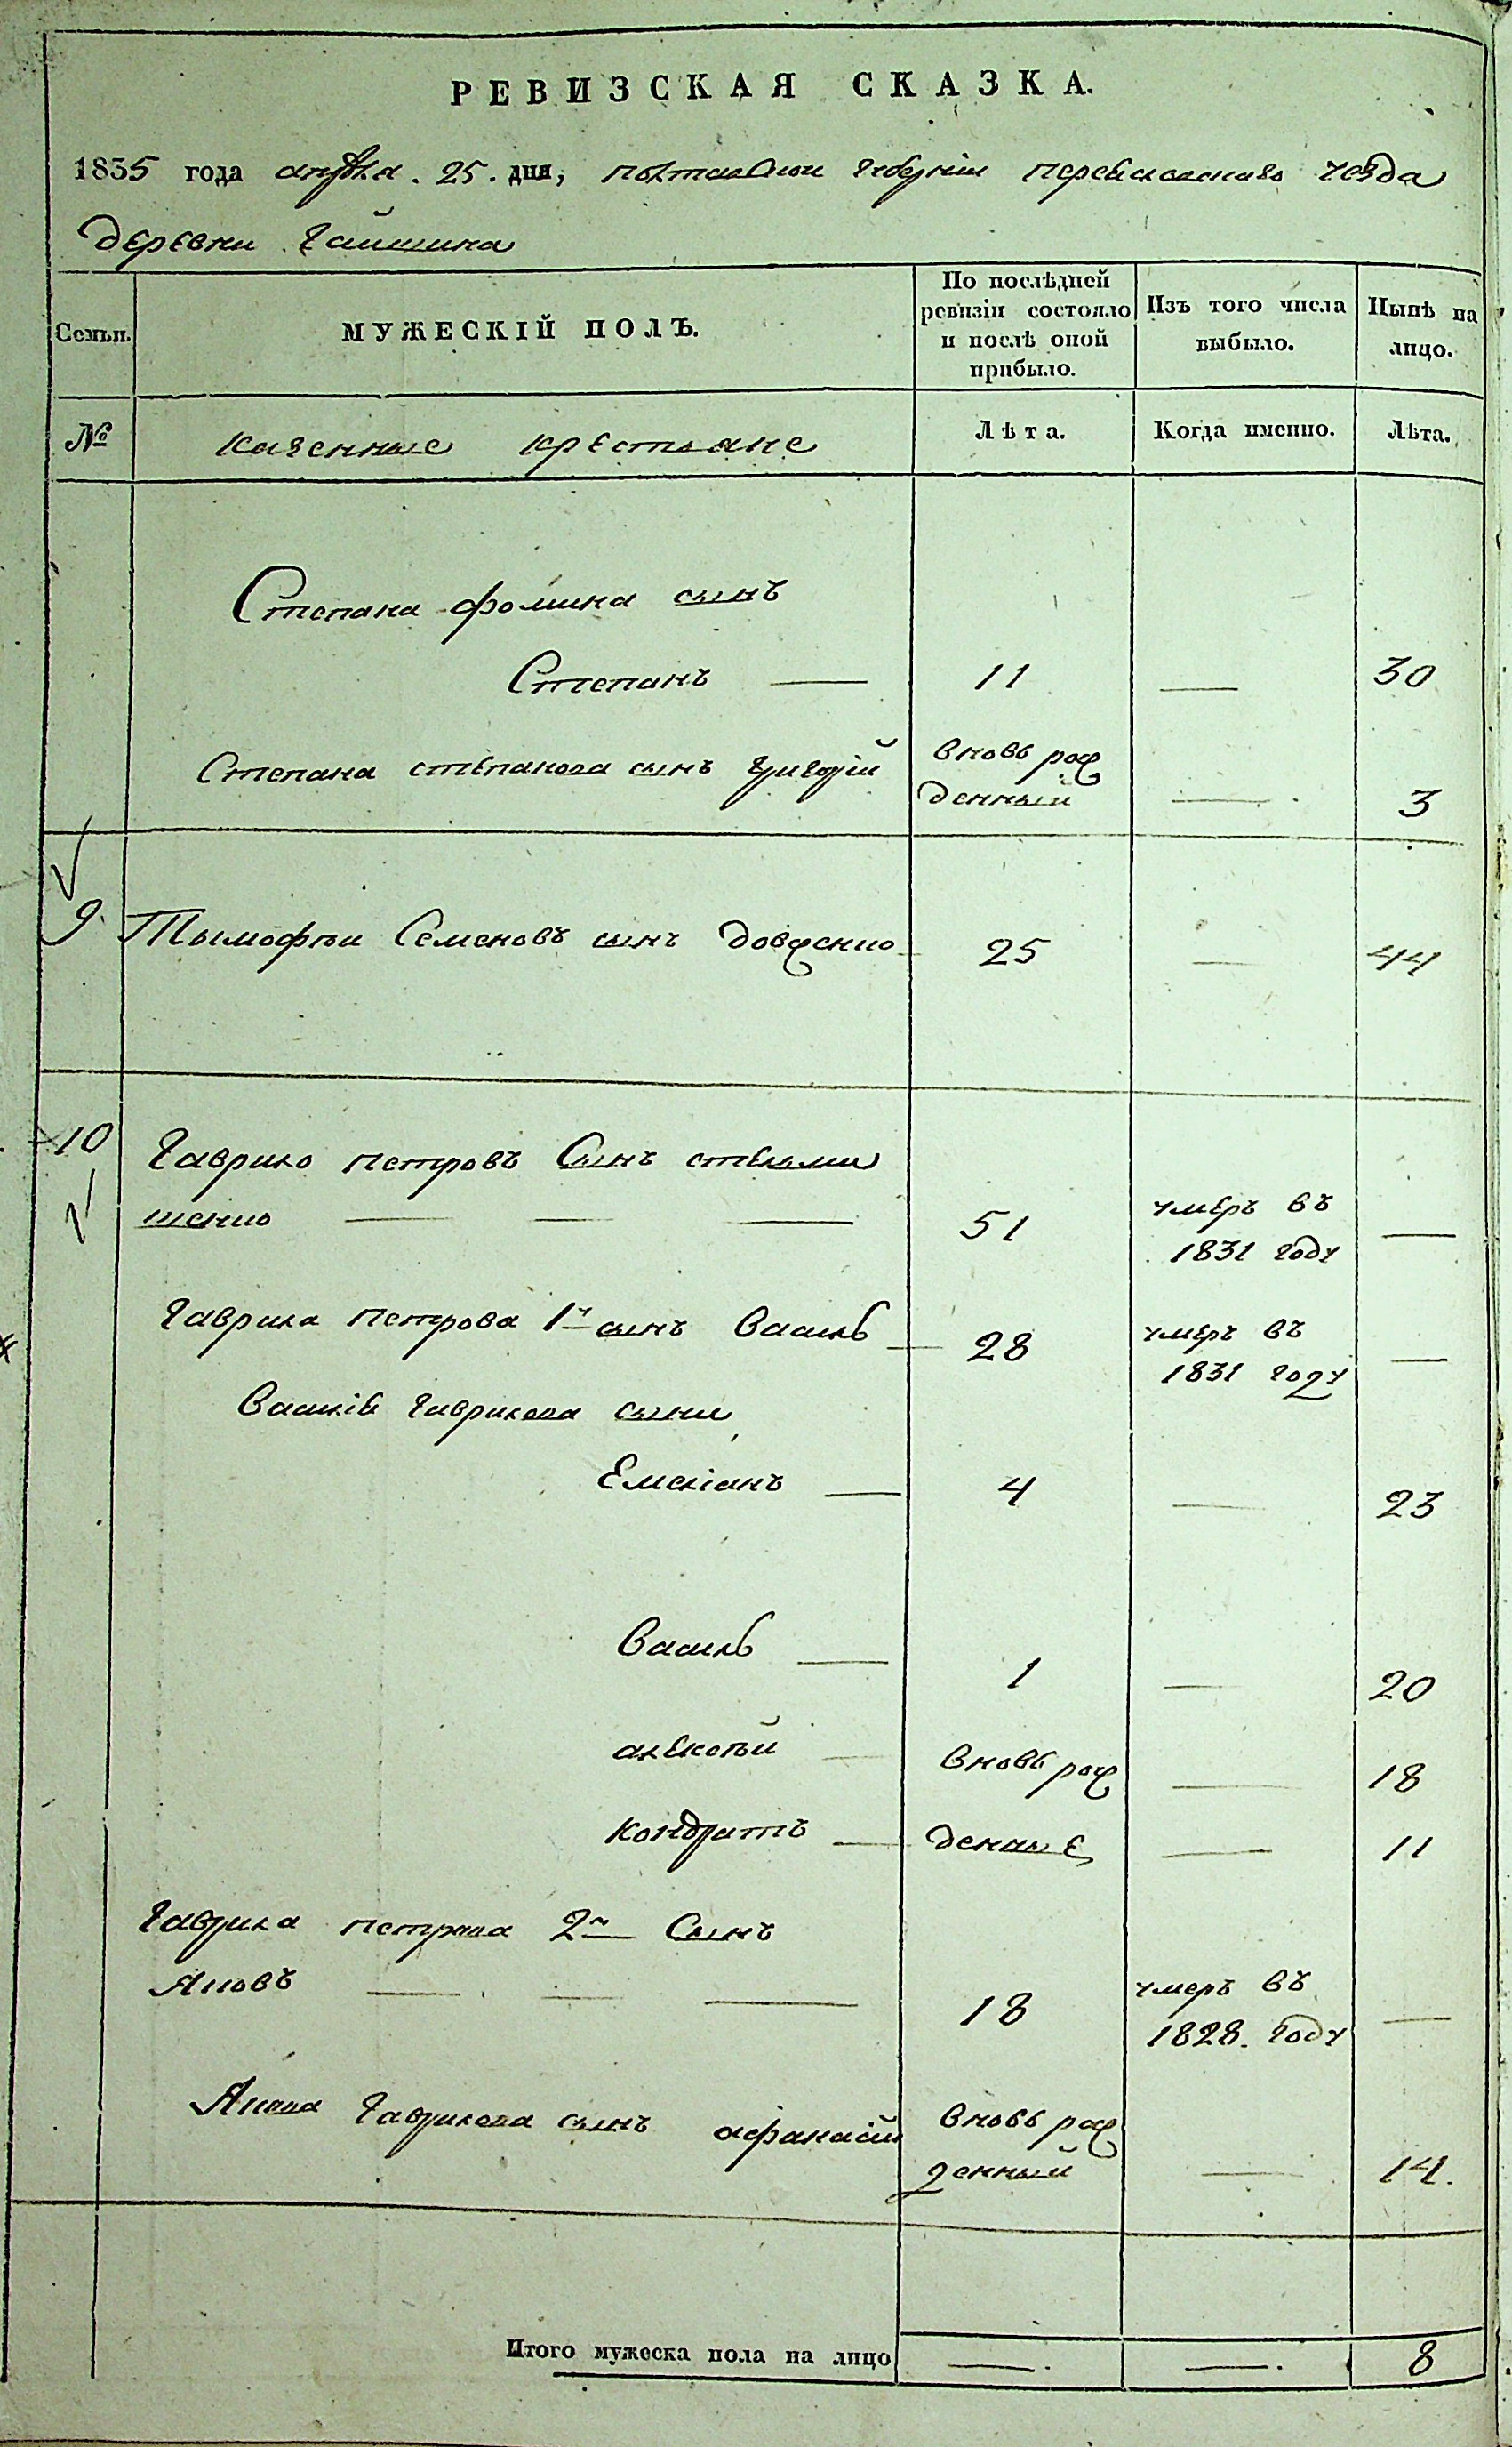 РЕВИЗСКАЯ СКАЗКА.
1835 года апреля. 25. дня, полтавской губерніи переясловскаго уезда
деревни Гайшина
Семьи. МУЖЕСКІЙ ПОЛЪ. По послѣдней ревизіи состояло и послѣ оной прибыло. Изъ того числа выбыло. Нынѣ на лицо.
№ казенные крестьяне Лѣта. Когда именно. Лѣта.
Степана фомина сынъ
Степанъ — 11 — 30
Степана степанова сынъ григорій вновь рож
денный — 3
9. Тымофѣй Семеновъ сынъ довженко 25 — 44
10 Гаврило петровъ Сынъ стельми
шенко — — — 51 умеръ въ
1831 году —
Гаврила петрова 1й сынъ Василь — 28 умеръ въ
1831 году —
Василія гаврилова сыни
Емеліанъ — 4 — 23
Василь — 1 — 20
алексѣй — вновь рож — 18
кондратъ — денные — 11
Гаврила петрова 2й Сынъ
Яковъ — — — 18 умеръ въ
1828. году —
Якова Гаврилова сынъ афанасій вновь рож
денный — 14.
Итого мужеска пола на лицо —. —. 8